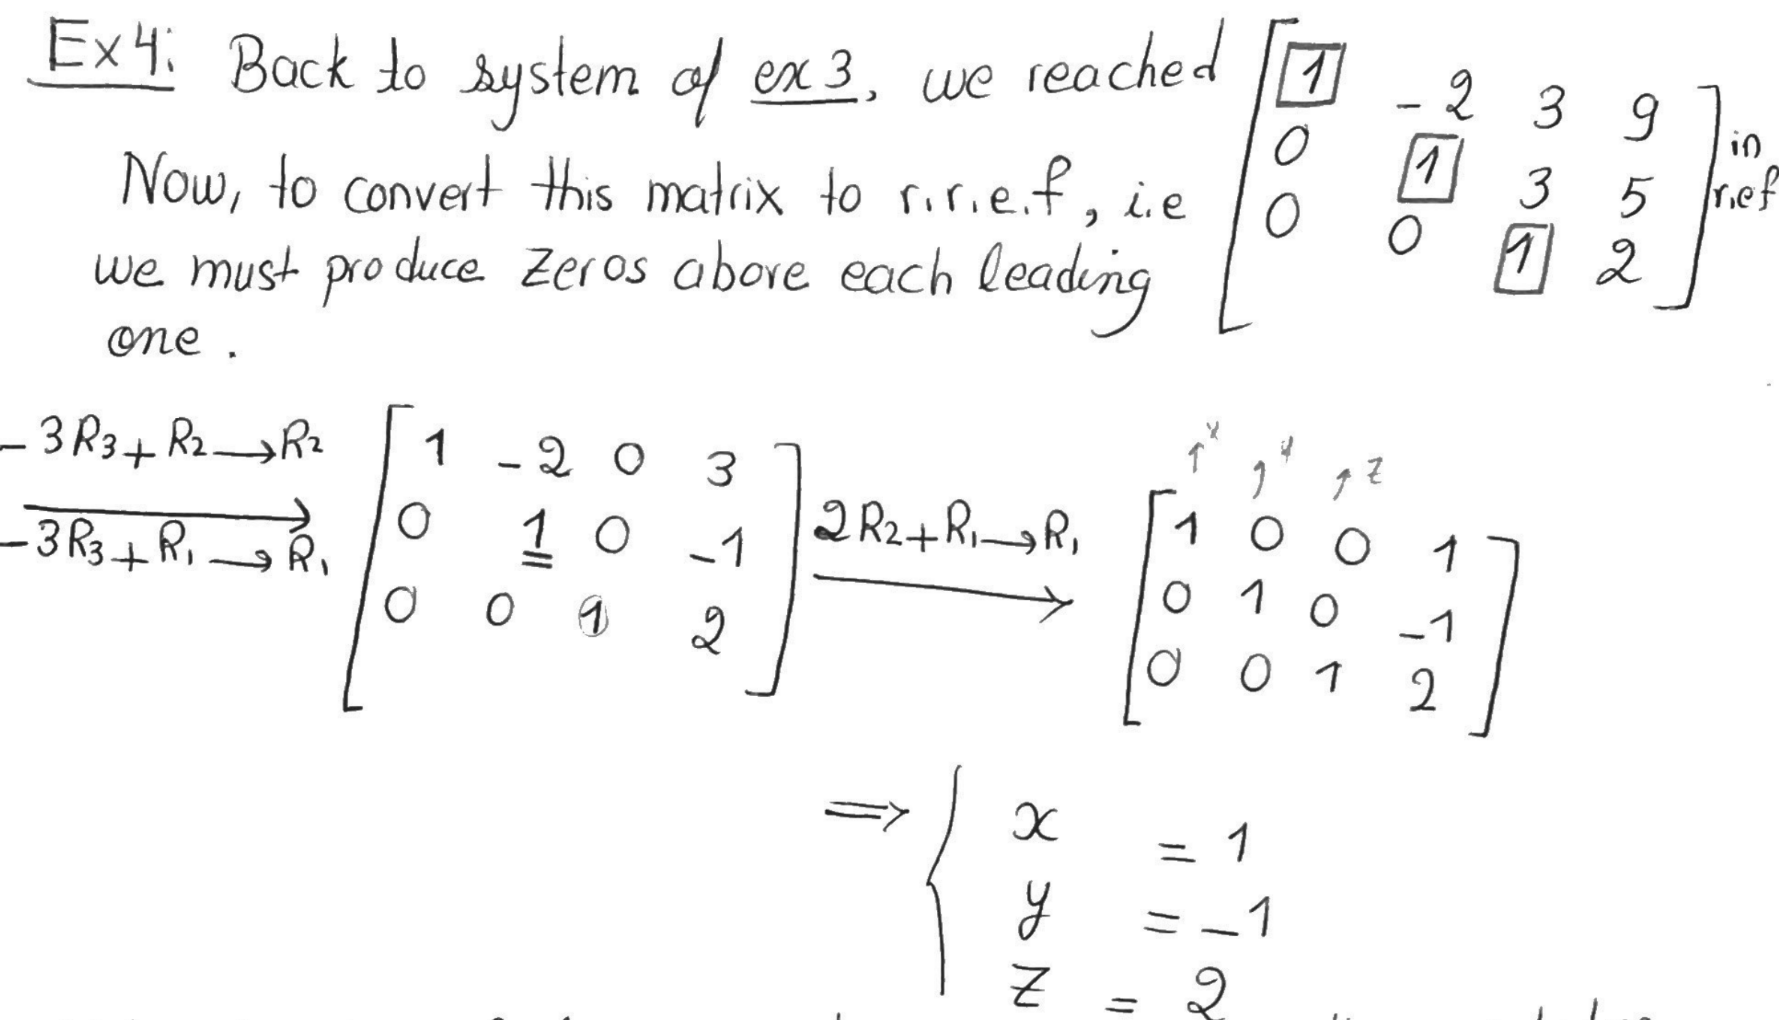 Ex4: Back to system of ex 3, we reached
[ 1 -2 3 9
0 1 3 5
0 0 1 2 ] in r.e.f
Now, to convert this matrix to r.r.e.f, i.e
we must produce zeros above each leading
one.
-3R3 + R2 → R2
-3R3 + R1 → R1
[ 1 -2 0 3
0 1 0 -1
0 0 1 2 ]
2R2 + R1 → R1
↑x ↑y ↑z
[ 1 0 0 1
0 1 0 -1
0 0 1 2 ]
⇒ { x = 1
y = -1
z = 2